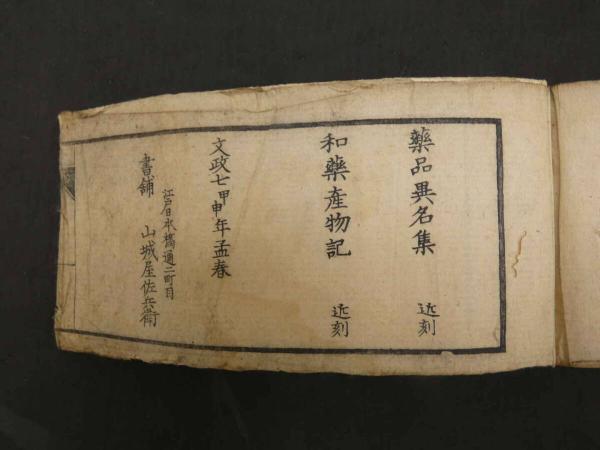 藥品異名集 近刻
和藥産物記 近刻
文政七甲申年孟春
江戸日本橋通二町目
書舖 山城屋佐兵衛